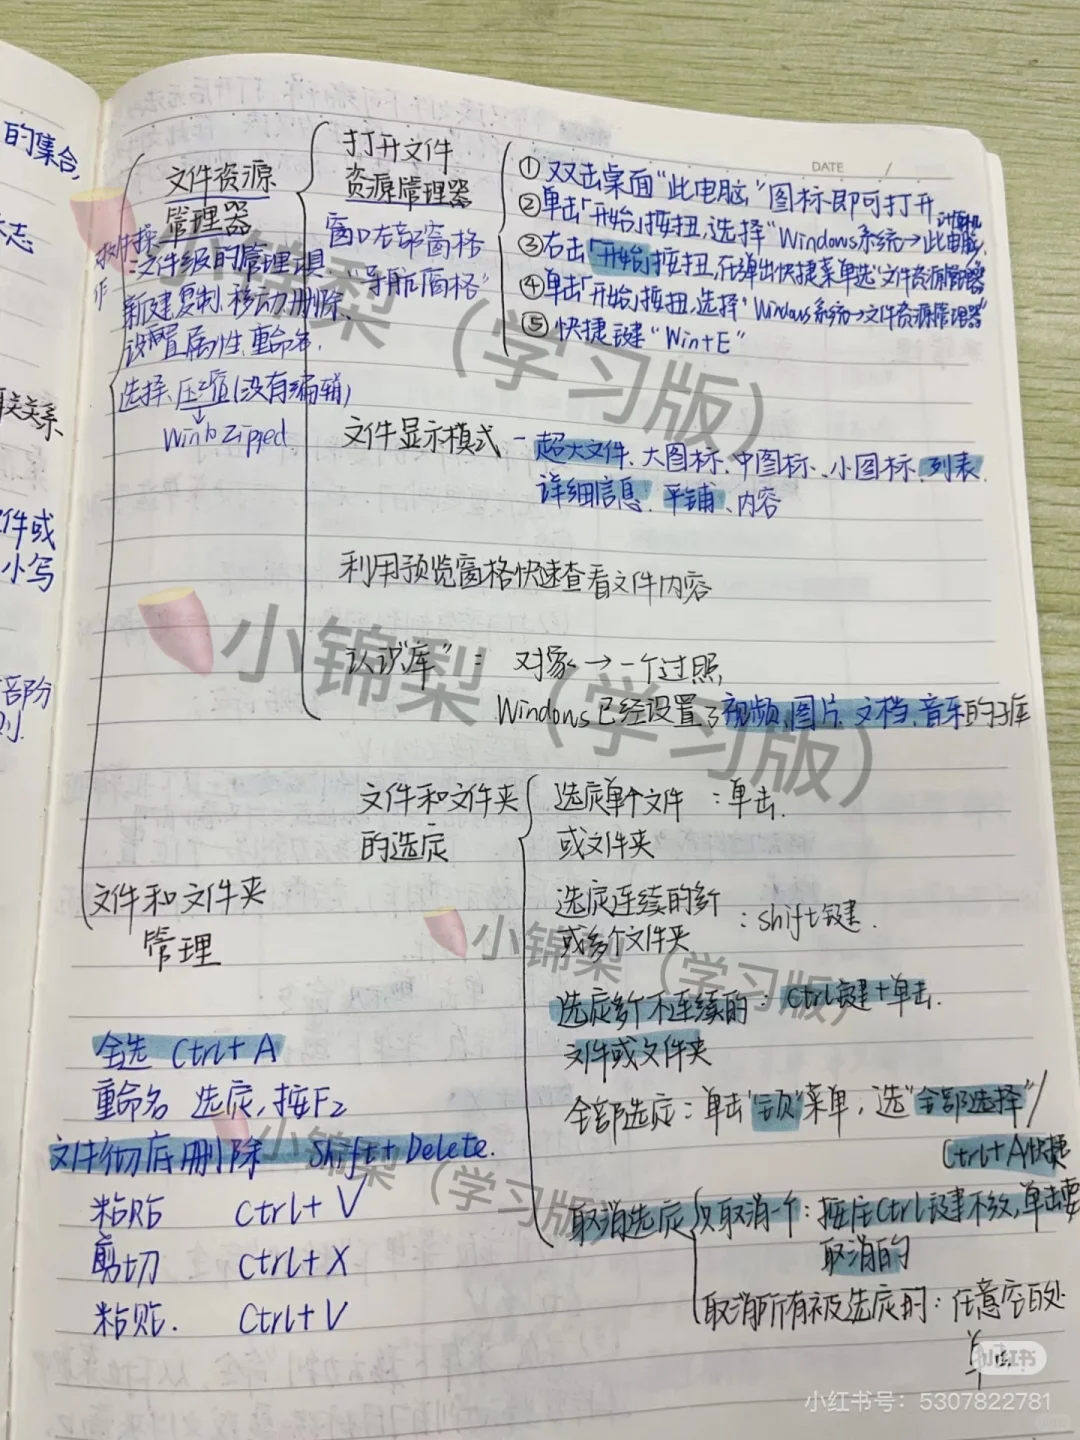 的集合,
志
关系、
件或
小写
部分
则.
DATE /
文件资源
管理器
软件操
作
:文件级的管理工具
新建.复制.移动.删除、
设置属性.重命名.
选择、压缩(没有编辑)
↓
Win to Zipped
打开文件
资源管理器
窗口左部窗格
"导航窗格"
①双击桌面"此电脑"图标即可打开
计算机
②单击「开始」按扭,选择"Windows系统→此电脑
③右击「开始」按扭,在弹出快捷菜单选"文件资源管理器
④单击「开始」按扭,选择"Windows系统→文件资源管理器"
⑤快捷键"Win+E"
文件显示模式 - 超大文件、大图标、中图标、小图标、列表.
详细信息、平铺、内容
利用预览窗格快速查看文件内容
认识"库": 对象→一个过照,
Windows已经设置了视频、图片、文档、音乐的子库
文件和文件夹
管理
文件和文件夹
的选定
选定单个文件 :单击.
或文件夹
选定连续的多个 :shift键.
或多个文件夹
选定多个不连续的: Ctrl键+单击.
文件或文件夹
全部选定:单击"主页"菜单,选"全部选择"/
Ctrl+A快捷
取消选定 只取消一个:按住Ctrl键不放,单击要
取消的
取消所有被选定的:任意空白处
单击
全选 Ctrl+A
重命名 选定,按F2
文件彻底删除 Shift+Delete.
粘贴 Ctrl+V
剪切 Ctrl+X
粘贴. Ctrl+V
小锦梨(学习版)
小锦梨(学习版)
小锦梨(学习版)
小锦梨(学习版)
小红书
小红书号:5307822781